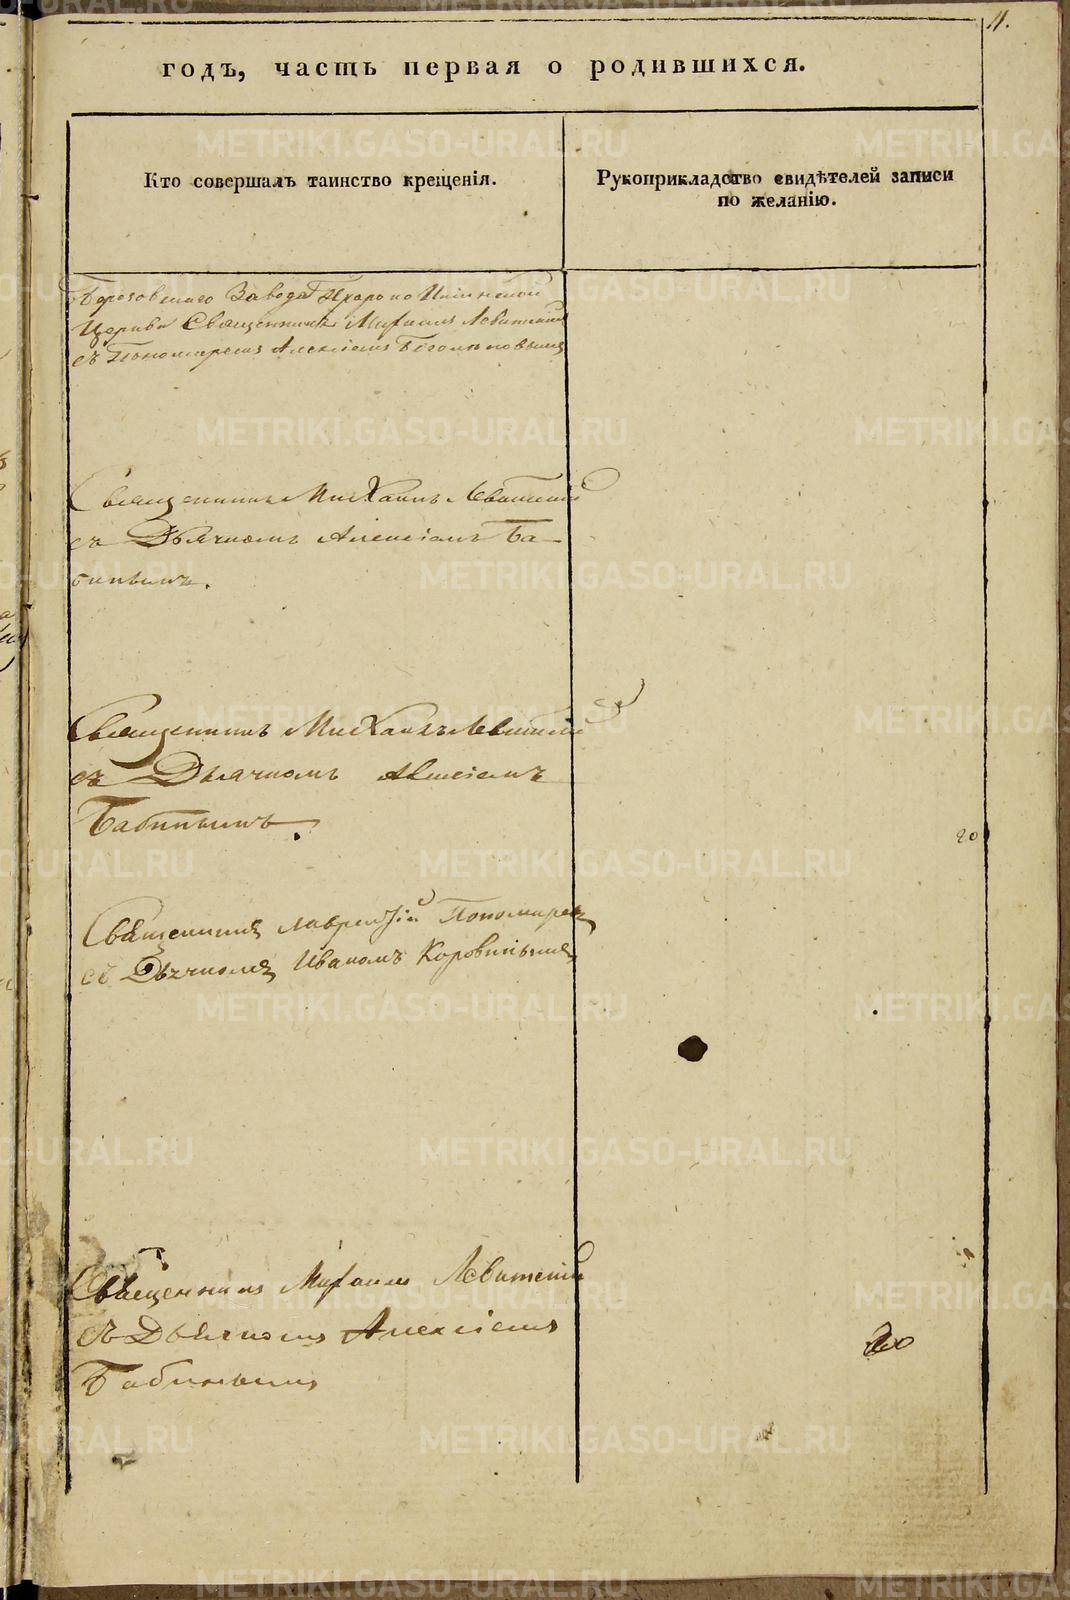 11.
годъ, часть первая о родившихся.
Кто совершалъ таинство крещенія.
Рукоприкладство свидѣтелей записи
по желанію.
Березовскаго Завода
Церкви Священникъ Михаилъ Левитскій
съ Пономаремъ Алексіемъ
Священникъ Михаилъ Левитскій
съ Дьячкомъ Алексіемъ Ба-
бинымъ.
Священникъ Михаилъ Левитскій
съ Дьячкомъ Алексіемъ
Бабинымъ.
20
Священникъ Лаврентій Пономаревъ
съ Дьячкомъ Иваномъ Коровинымъ
Священникъ Михаилъ Левитскій
съ Дьячкомъ Алексіемъ
Бабинымъ
20
METRIKI.GASO-URAL.RU